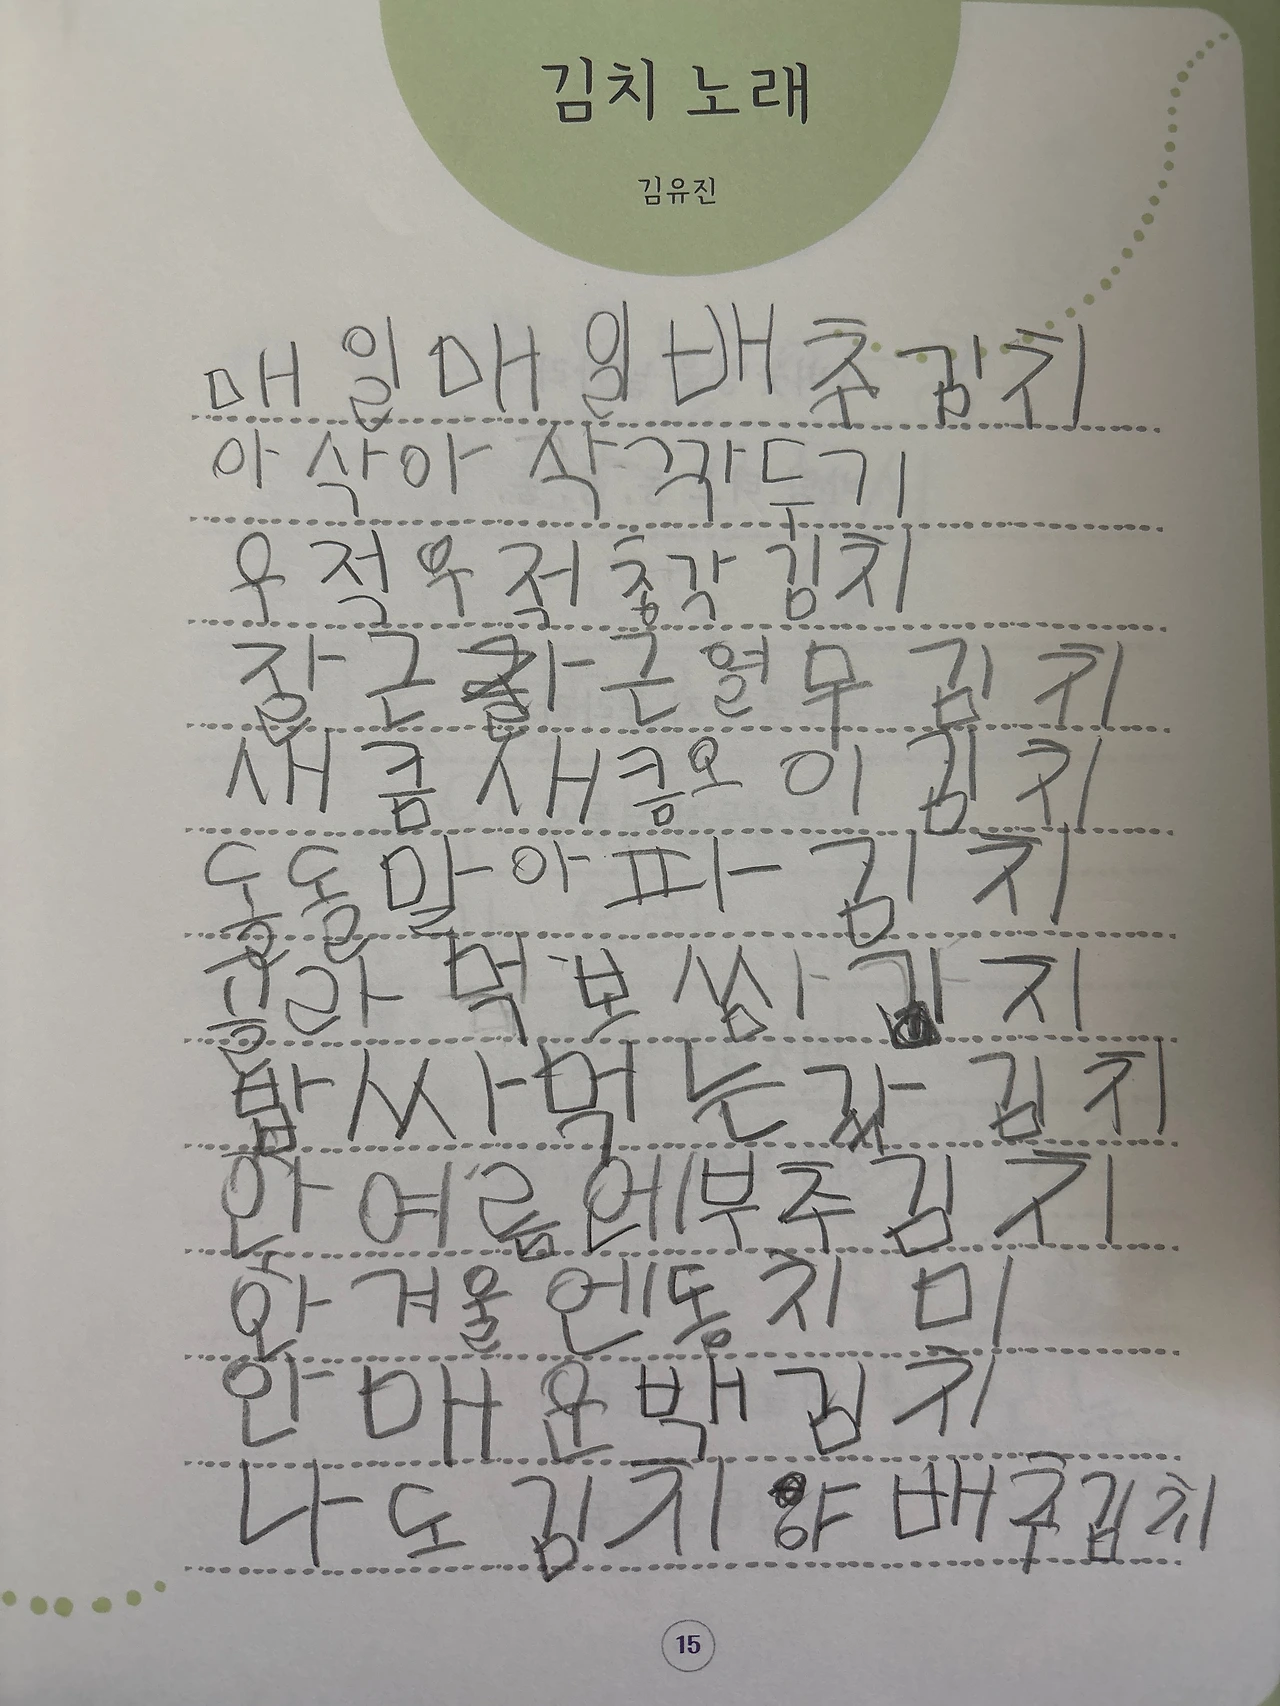 김치 노래
김유진
매일매일 배추김치
아삭아삭 깍두기
우적우적 총각김치
잘근잘근 열무김치
새콤새콤 오이김치
돌돌 말아 파김치
골라 먹 보쌈김치
밥 싸 먹는 갓김치
안 여름에 부추김치
안 겨울엔 동치미
안 매운 백김치
나도 김치 양배추김치
15